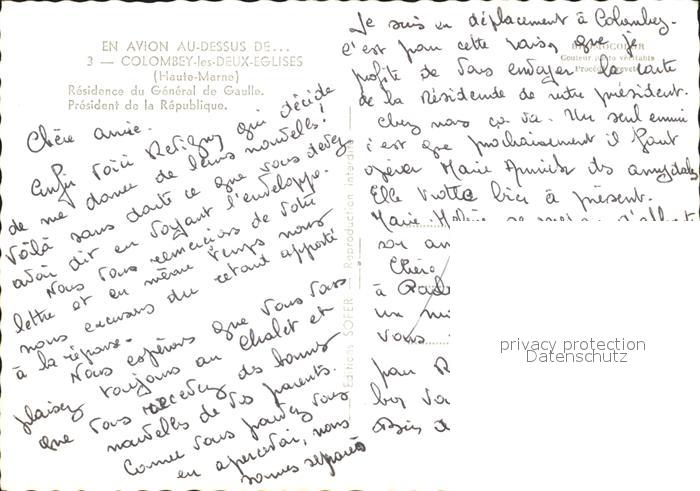 EN AVION AU-DESSUS DE...
3 — COLOMBEY-les-DEUX-EGLISES
(Haute-Marne)
Résidence du Général de Gaulle.
Président de la République.
Chère amie.
Enfin voilà Retigny qui décide
de me donner de leurs nouvelles!
Voilà sans doute ce que vous devez
avoir dit en voyant l'enveloppe.
Nous vous remercions de votre
lettre et en même temps nous
nous excusons du retard apporté
à la réponse.
Nous espérons que vous vous
plaisez toujours au Chalet et
que vous recevez des bonnes
nouvelles de vos parents.
Comme vous pouvez vous
en apercevoir, nous
sommes séparés
Editions SOFER — Reproduction interdite
Je suis en déplacement à Colombey.
C'est pour cette raison que je
Couleur photo véritable
profite de vous envoyer la carte
de la résidence de notre président.
Chez nous ça va. Un seul ennui
c'est que prochainement il faut
opérer Marie Annick des amygdales
Elle trotte bien à présent.
Marie
son an
Chère
à
un
vous
pour R
bon
privacy protection
Datenschutz